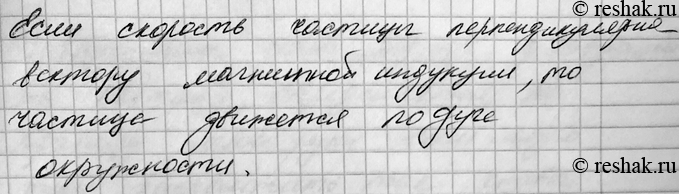 reshak.ru
Если скорость частицы перпендикулярна
вектору магнитной индукции, то
частица движется по дуге
окружности.
reshak.ru